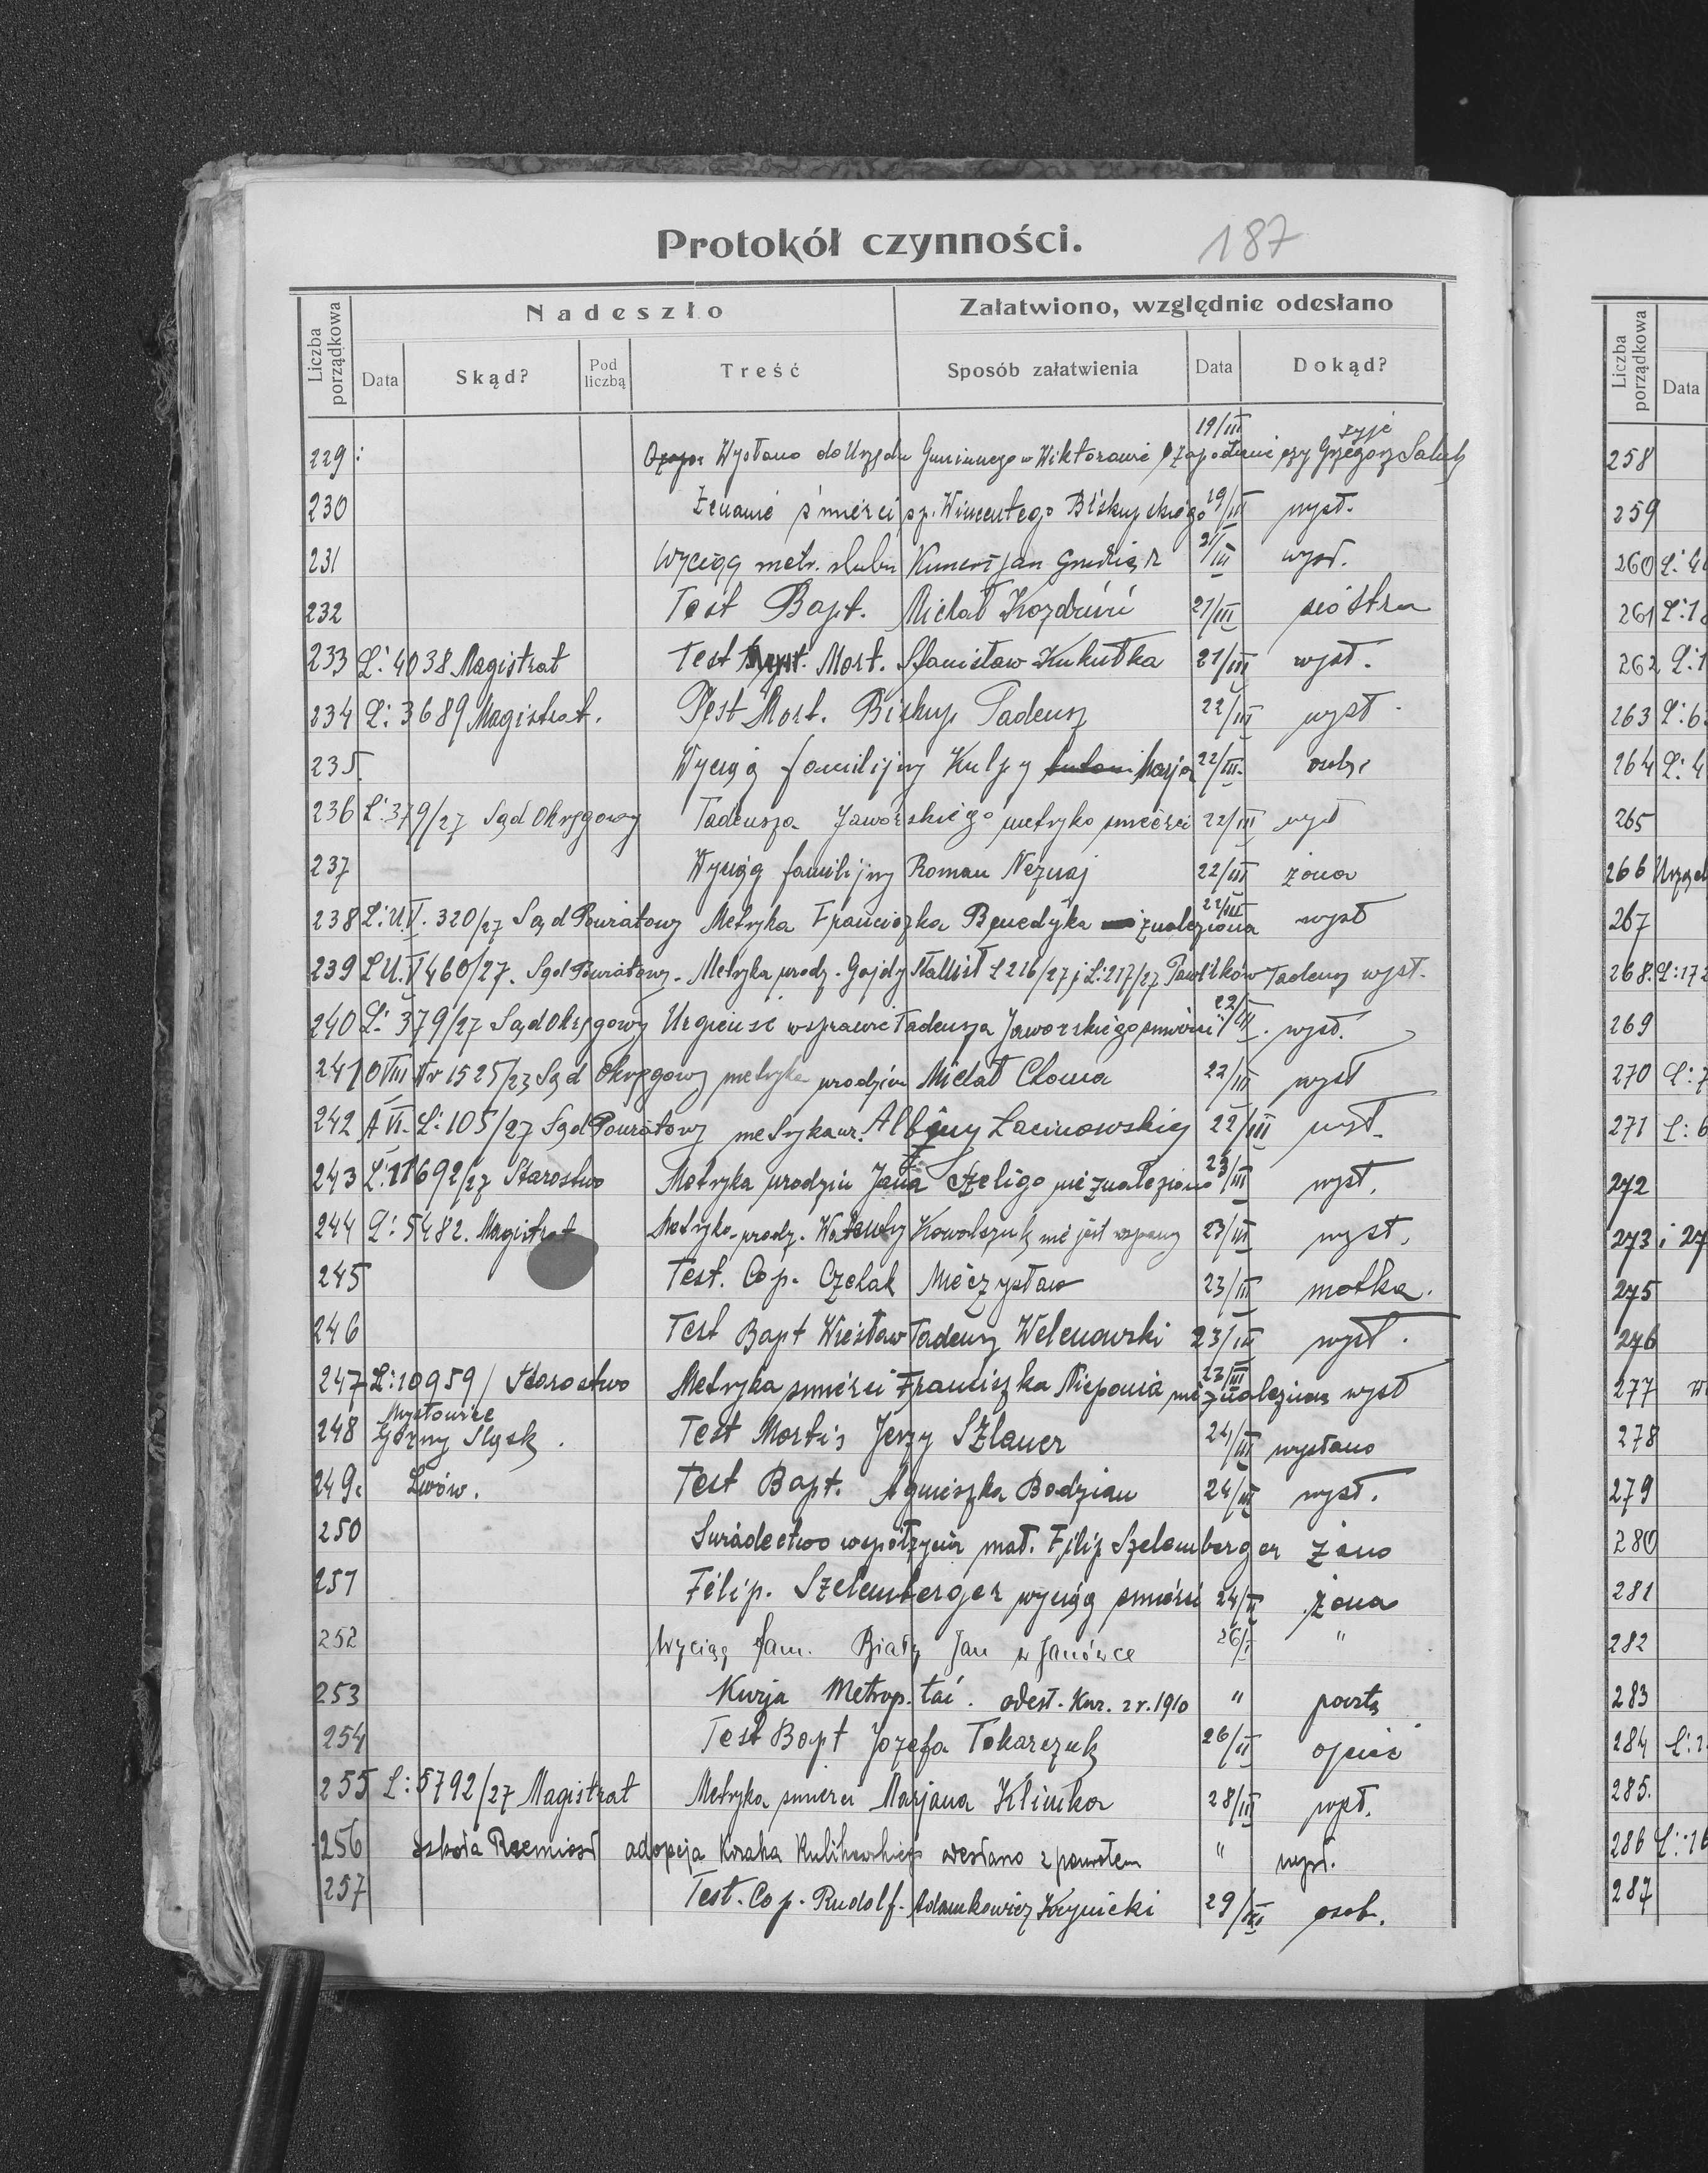 Protokół czynności.
187
Nadeszło
Załatwiono, względnie odesłano
Liczba porządkowa
Data
Skąd?
Pod liczbą
Treść
Sposób załatwienia
Data
Dokąd?
229 Wysłano do Urzędu Gminnego w Wiktorowie 19/III czy Grzegorz żyje
230 Zeznanie śmierci sp. Wincentego Biskupskiego 19/III wysł.
231 Wyciąg metr. slubu Jan 21/III wysł.
232 Test Bapt. Michał 21/III siostra
233 L: 4038 Magistrat Test Mort. Stanisław Kukułka 21/III wysł.
234 L: 3689 Magistrat. Test Mort. Biskup Tadeusz 22/III wysł.
235 Wyciąg familijny Kulpy Marja 22/III. osob.
236 L: 379/27 Sąd Okręgowy Tadeusza Jaworskiego metryka smierci 22/III wysł
237 Wyciąg familijny Roman Neznaj 22/III żona
238 L: U.V. 320/27 Sąd Powiatowy Metryka Franciszka Benedyka znaleziona 22/III wysł
239 L U. V 460/27. Sąd Powiatowy. Metryka urodz. Gajdy L 216/27 i L: 217/27 Pawlików Tadeusz wysł.
240 L: 379/27 Sąd Okręgowy w sprawie Tadeusza Jaworskiego smierci 22/III. wysł.
241 O VIII Nr 1525/23 Sąd Okręgowy metryka urodzin Michał Choma 22/III wysł
242 A VI. L: 105/27 Sąd Powiatowy metryka ur. Albiny Łacinowskiej 22/III wysł.
243 L: 11692/27 Starostwo Metryka urodzin Jana Szeligo nie znaleziono 23/III wysł.
244 L: 5482. Magistrat Metryka urodz. Kowalczuk nie jest 23/III wysł.
245 Test. Cop. Czelak Mieczysław 23/III matka.
246 Test Bapt Wiesław Tadeusz Welenowski 23/III wysł.
247 L: 10959/ Starostwo Metryka smierci Franciszka Nieponia nie znaleziona 23/III wysł
248 Mysłowice Górny Sląsk. Test Mortis Jerzy Szlauer 24/III wysłano
249. Lwów. Test Bapt. Agnieszka Bodzian 24/III wysł.
250 Swiadectwo współżycia mał. Filip Szelemberger żona
251 Filip. Szelemberger wyciąg smierci 24/III żona
252 Wyciąg fam. Biały Jan w Janówce 26/ "
253 Kurja Metrop. łać. odesł. Kur. z r. 1910 " pocztą
254 Test Bapt Jozefa Tokarczuk 26/III ojciec
255 L: 5792/27 Magistrat Metryka smierci Marjana Klimka 28/III wysł.
256 Szkoła Rzemiosł adopcja Kulikowskiego odesłano z powrotem " wysł.
257 Test. Cop. Rudolf. Adamkowicz Krynicki 29/III osob.
Liczba porządkowa
Data
258
259
260 L: 4
261 L: 1
262 L: 1
263 L: 6
264 L: 4
265
266
267
268. L: 172
269
270 L: 7
271 L: 6
272
273 i 27
275
276
277
278
279
280
281
282
283
284 L: 2
285.
286 L: 16
287